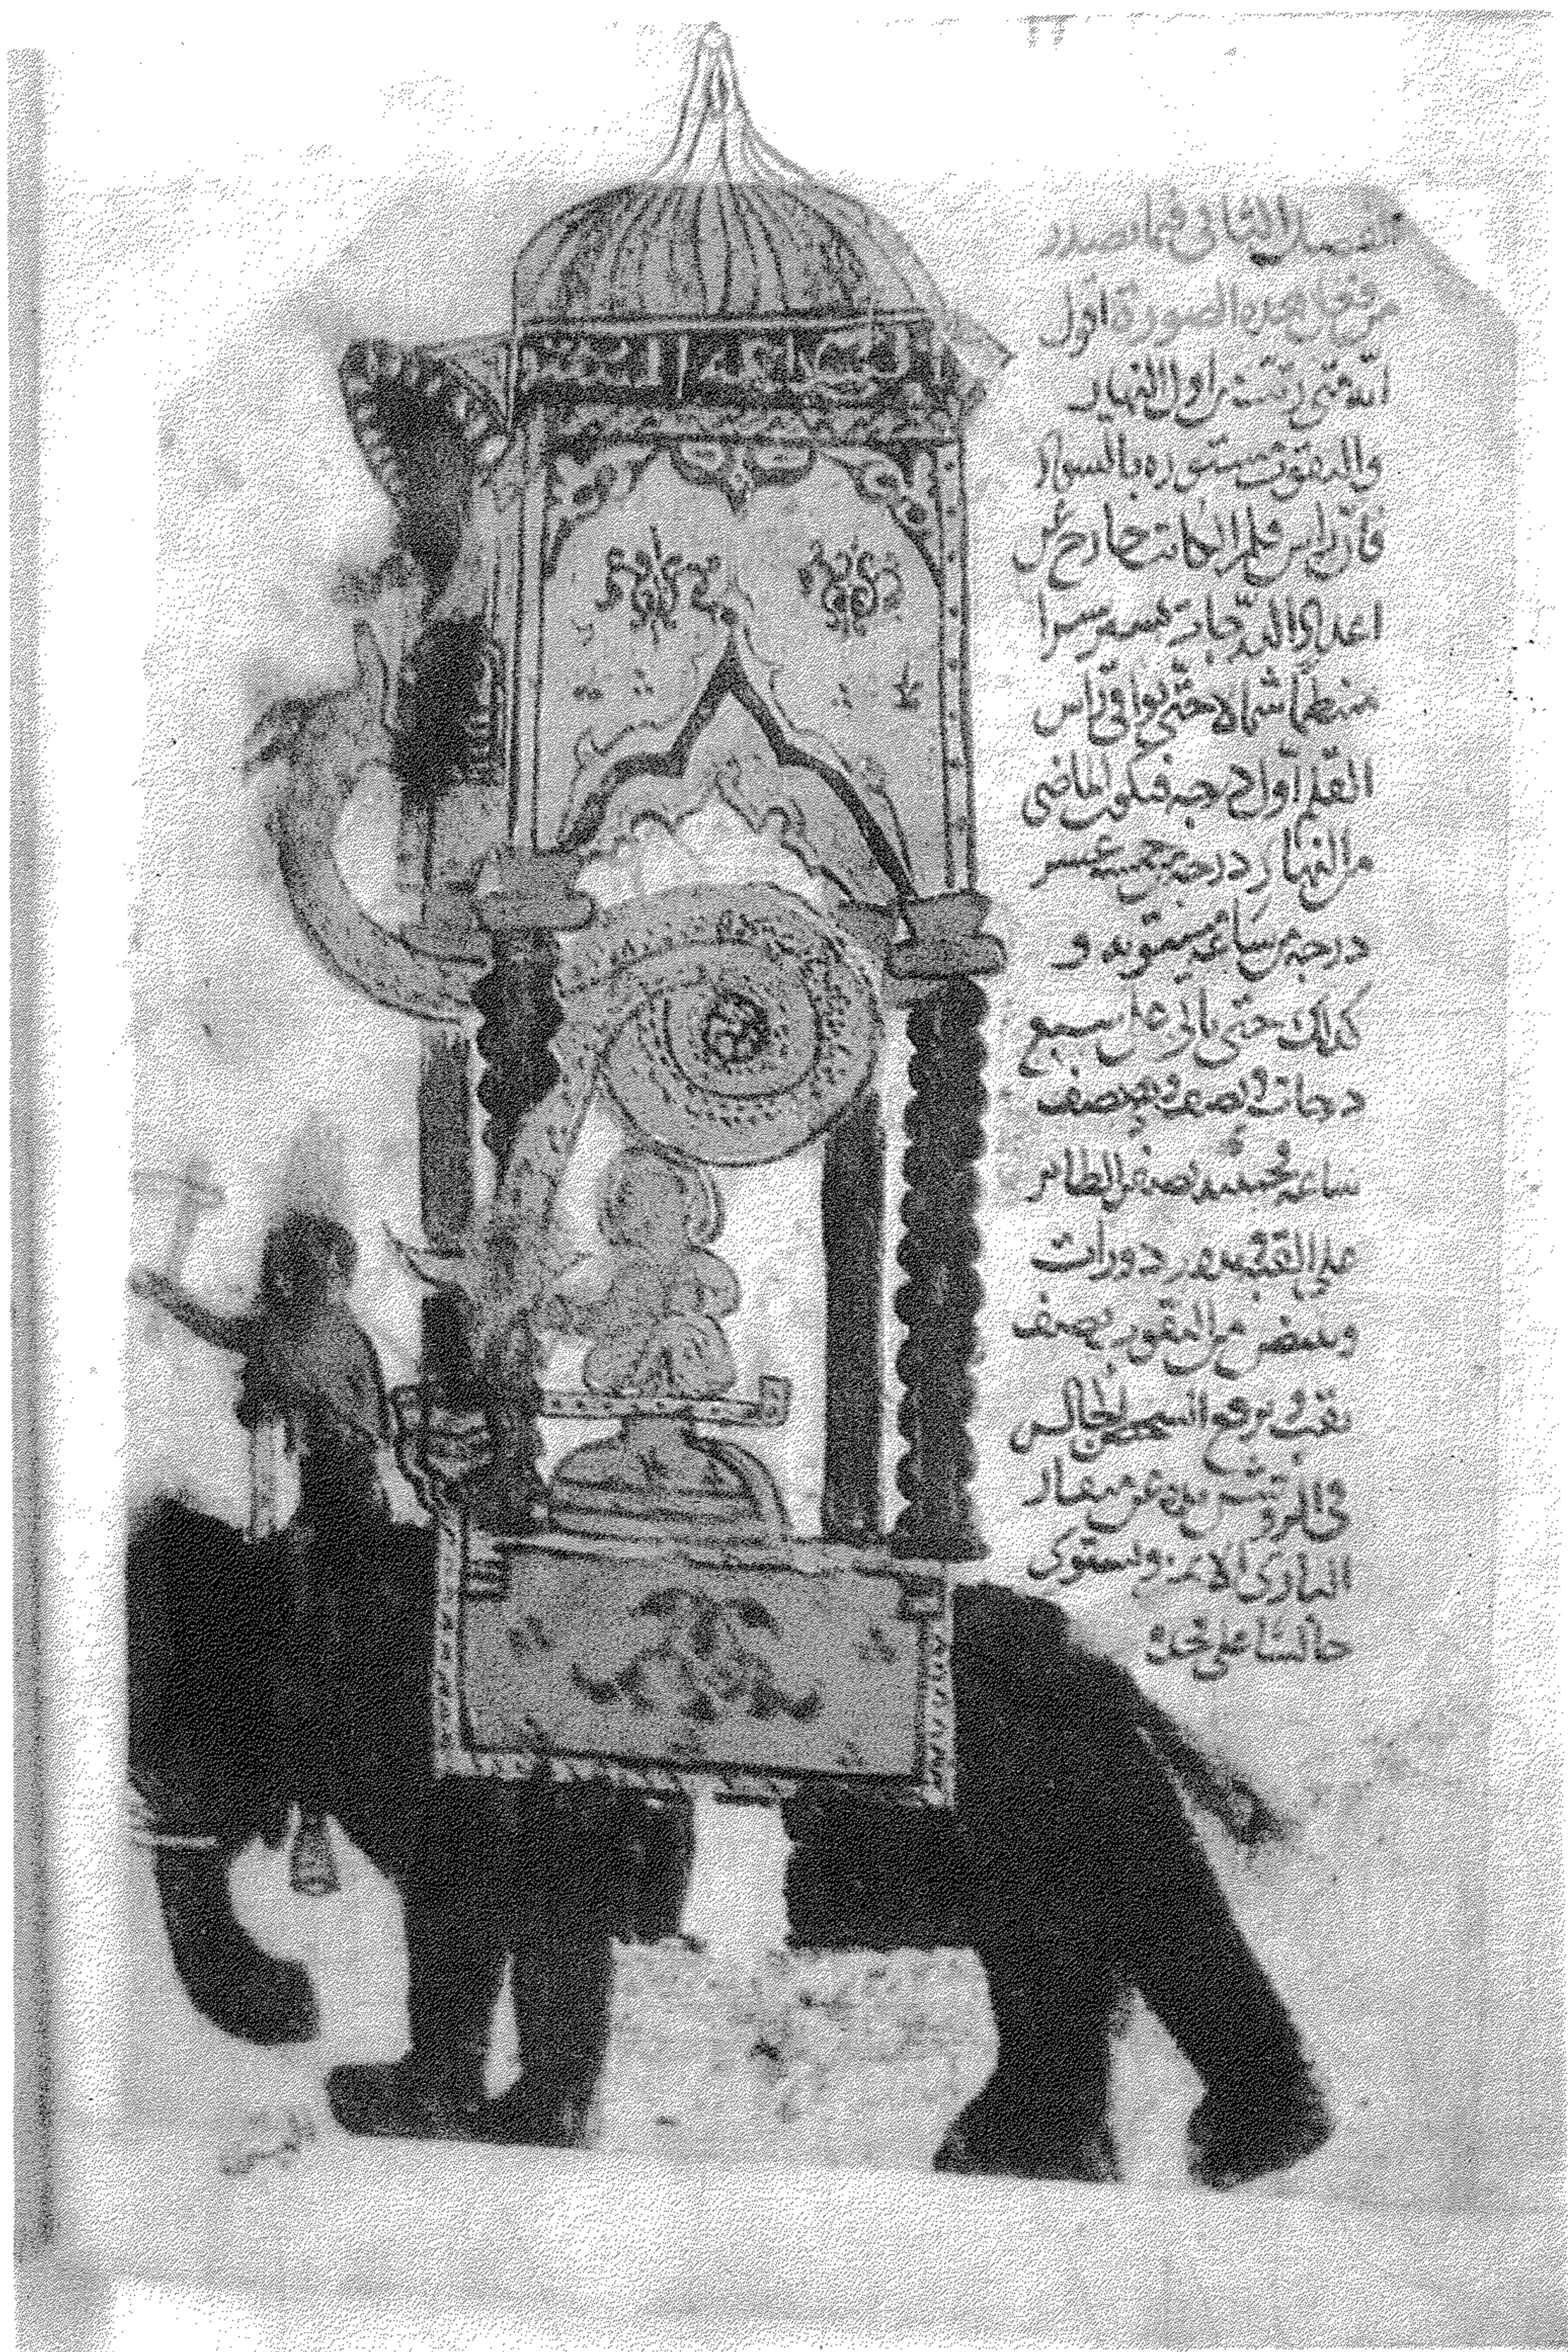 الفصل الثاني فيما تصدر
من فعل هذه الصورة اقول
انه متى رتبت من اول النهار
والنقوب مستوره بالسواد
فان راس قلم الكاتب خارج عن
اعداد الدرجات تسير سيرا
شمالا حتى يوافي راس
القلم اول درجه فيكون الماضي
من النهار درجه من خمسة عشر
درجه من ساعه مستويه و
كذلك حتى ياتي على سبع
درجات ونصف وهو نصف
ساعه فحينئذ يصفر الطائر
على القبه ويدور دورات
ويبيض من النقوب نصف
نقب ويرفع الشخص الجالس
في الروشن يده عن منقار
البازي الايمن